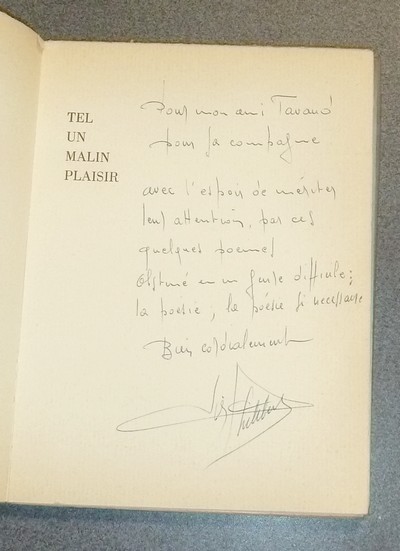 TEL
UN
MALIN
PLAISIR
Pour mon ami
pour sa compagne
avec l'espoir de mériter
leur attention, par ces
quelques poemes
en un difficile :
la poésie, la poésie si necessaire
Bien cordialement